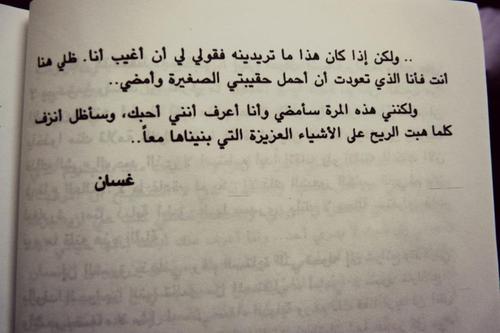 .. ولكن إذا كان هذا ما تريدينه فقولي لي أن أغيب أنا. ظلي هنا
انت فأنا الذي تعودت أن أحمل حقيبتي الصغيرة وأمضي..
ولكنني هذه المرة سأمضي وأنا أعرف أنني أحبك، وسأظل أنزف
كلما هبت الريح على الأشياء العزيزة التي بنيناها معاً..
غسان